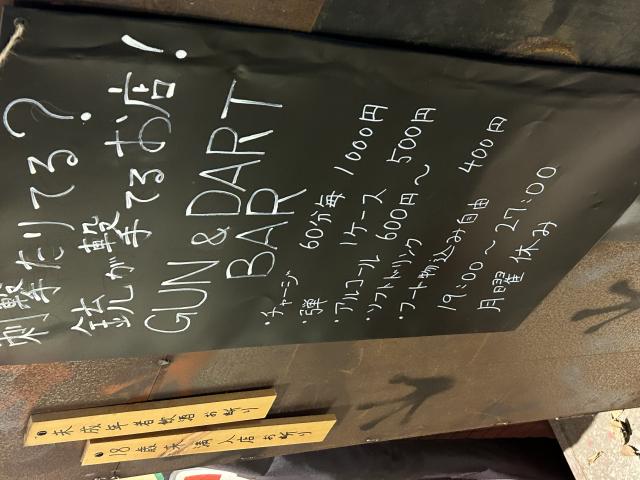 刺撃たりてる?
銃が撃てるお店!
GUN & DART
BAR
・チャージ 60分毎 1000円
・弾 1ケース 500円
・アルコール 600円〜
・ソフトドリンク 400円
・フード持込み自由
19:00〜27:00
月曜 休み
未成年者飲酒お断り
18歳未満入店お断り